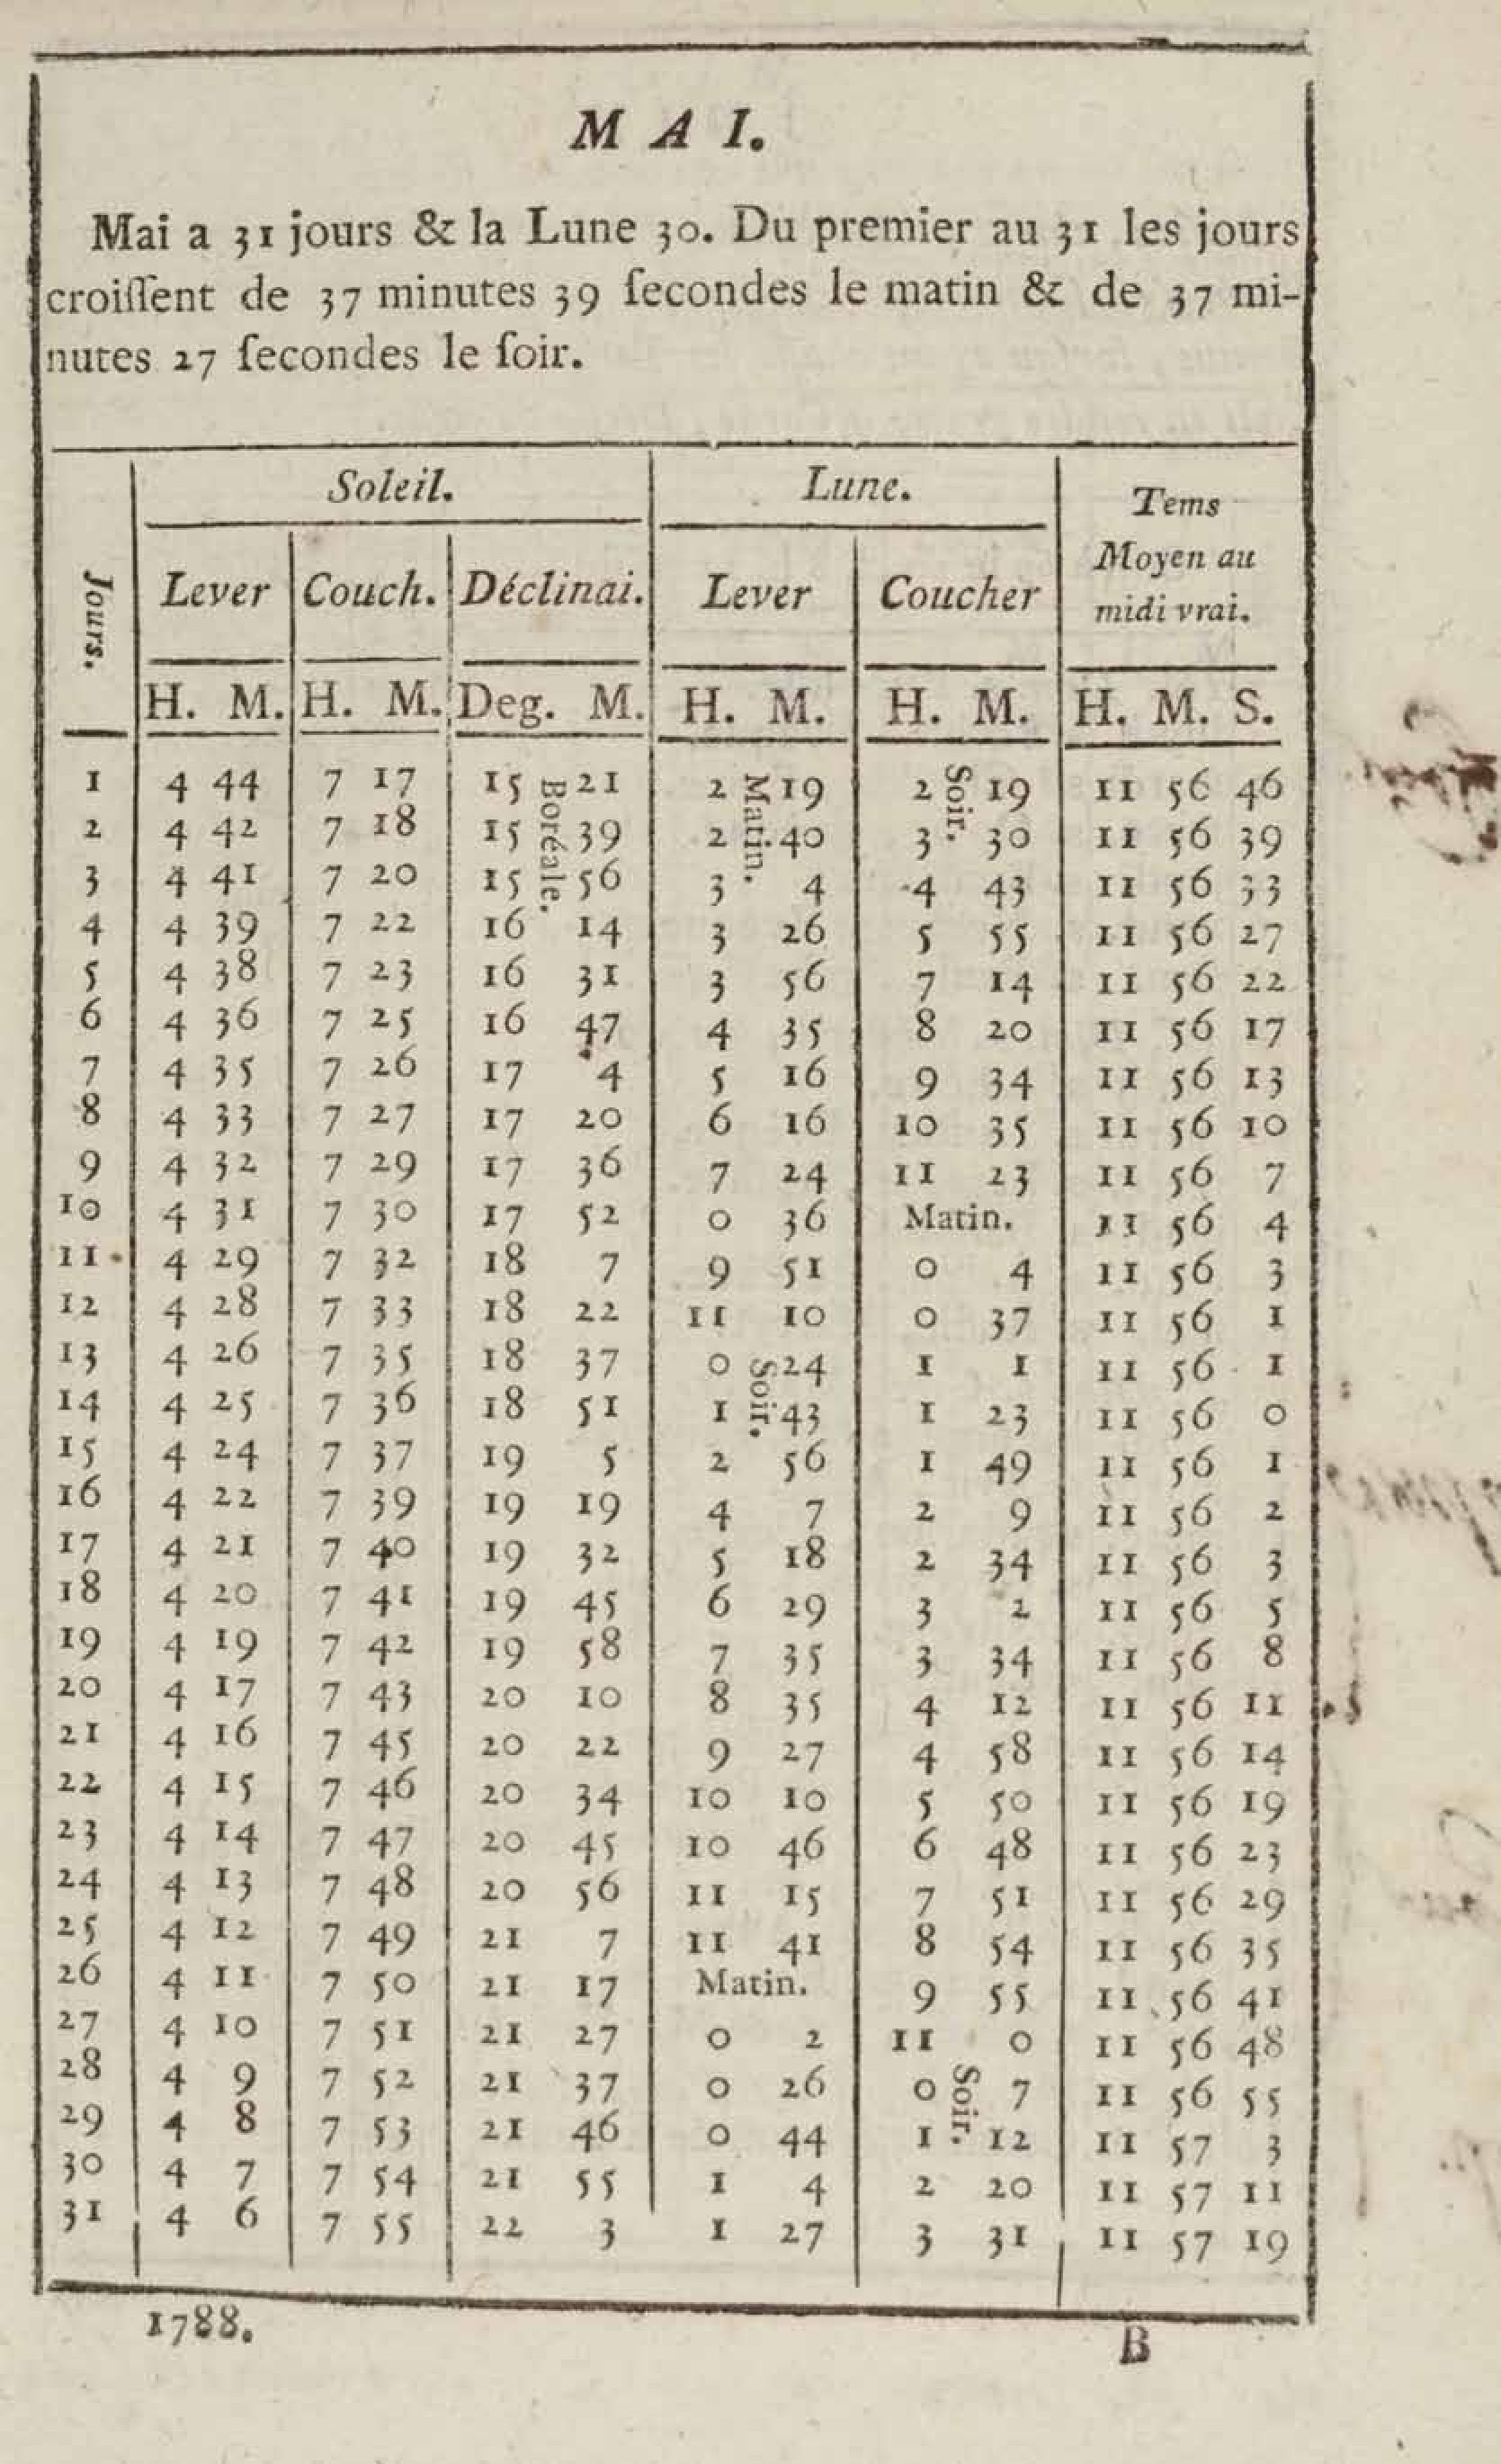 MAI.
Mai a 31 jours & la Lune 30. Du premier au 31 les jours
croiſſent de 37 minutes 39 ſecondes le matin & de 37 mi-
nutes 27 ſecondes le ſoir.
Jours. Soleil. Lune. Tems Moyen au midi vrai.
Lever Couch. Déclinai. Lever Coucher
H. M. H. M. Deg. M. H. M. H. M. H. M. S.
1 4 44 7 17 15 Boréale. 21 2 Matin. 19 2 Soir. 19 11 56 46
2 4 42 7 18 15 39 2 40 3 30 11 56 39
3 4 41 7 20 15 56 3 4 4 43 11 56 33
4 4 39 7 22 16 14 3 26 5 55 11 56 27
5 4 38 7 23 16 31 3 56 7 14 11 56 22
6 4 36 7 25 16 47 4 35 8 20 11 56 17
7 4 35 7 26 17 4 5 16 9 34 11 56 13
8 4 33 7 27 17 20 6 16 10 35 11 56 10
9 4 32 7 29 17 36 7 24 11 23 11 56 7
10 4 31 7 30 17 52 0 36 Matin. 11 56 4
11 4 29 7 32 18 7 9 51 0 4 11 56 3
12 4 28 7 33 18 22 11 10 0 37 11 56 1
13 4 26 7 35 18 37 0 Soir. 24 1 1 11 56 1
14 4 25 7 36 18 51 1 43 1 23 11 56 0
15 4 24 7 37 19 5 2 56 1 49 11 56 1
16 4 22 7 39 19 19 4 7 2 9 11 56 2
17 4 21 7 40 19 32 5 18 2 34 11 56 3
18 4 20 7 41 19 45 6 29 3 2 11 56 5
19 4 19 7 42 19 58 7 35 3 34 11 56 8
20 4 17 7 43 20 10 8 35 4 12 11 56 11
21 4 16 7 45 20 22 9 27 4 58 11 56 14
22 4 15 7 46 20 34 10 10 5 50 11 56 19
23 4 14 7 47 20 45 10 46 6 48 11 56 23
24 4 13 7 48 20 56 11 15 7 51 11 56 29
25 4 12 7 49 21 7 11 41 8 54 11 56 35
26 4 11 7 50 21 17 Matin. 9 55 11 56 41
27 4 10 7 51 21 27 0 2 11 0 11 56 48
28 4 9 7 52 21 37 0 26 0 Soir. 7 11 56 55
29 4 8 7 53 21 46 0 44 1 12 11 57 3
30 4 7 7 54 21 55 1 4 2 20 11 57 11
31 4 6 7 55 22 3 1 27 3 31 11 57 19
1788. B